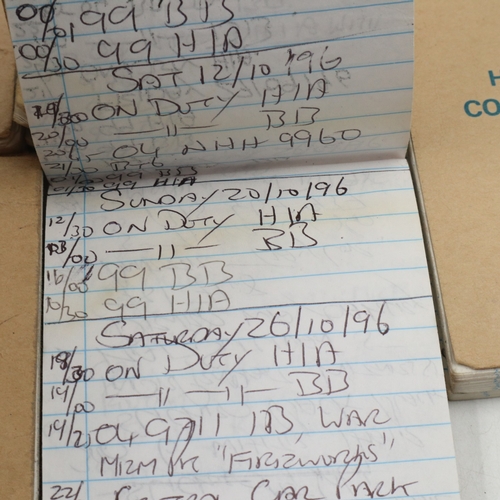 00/01 99 BB
00/30 99 HIA
SAT 12/10/96
ON DUTY HIA
20/00 — 11 — BB
04 NHH 9960
99 BB
99 HIA
SUNDAY 20/10/96
12/30 ON DUTY HIA
13/00 — 11 — BB
16/00 99 BB
16/30 99 HIA
SATURDAY 26/10/96
18/30 ON DUTY HIA
19/00 — 11 — 11 — BB
19/2 04 9711 IB, WAR
"FIREWORKS",
22/ CAR PARK
H
CO